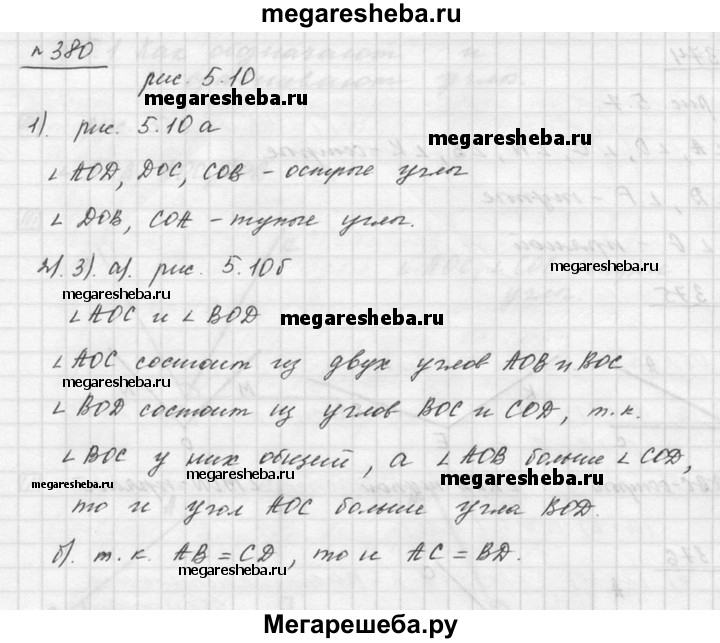 megaresheba.ru
№ 380
рис. 5.10
megaresheba.ru
1). рис. 5.10 а
megaresheba.ru
∠ AOD, DOC, COB – острые углы
∠ DOB, COA – тупые углы.
2). 3). а). рис. 5.10б
megaresheba.ru
megaresheba.ru
∠ AOC и ∠ BOD
megaresheba.ru
∠ AOC состоит из двух углов AOB и BOC
megaresheba.ru
∠ BOD состоит из углов BOC и COD, т.к.
∠ BOC у них общий, а ∠ AOB больше ∠ COD,
megaresheba.ru
megaresheba.ru
то и угол AOC больше угла BOD.
б). т.к. AB = CD, то и AC = BD.
megaresheba.ru
Мегарешеба.ру